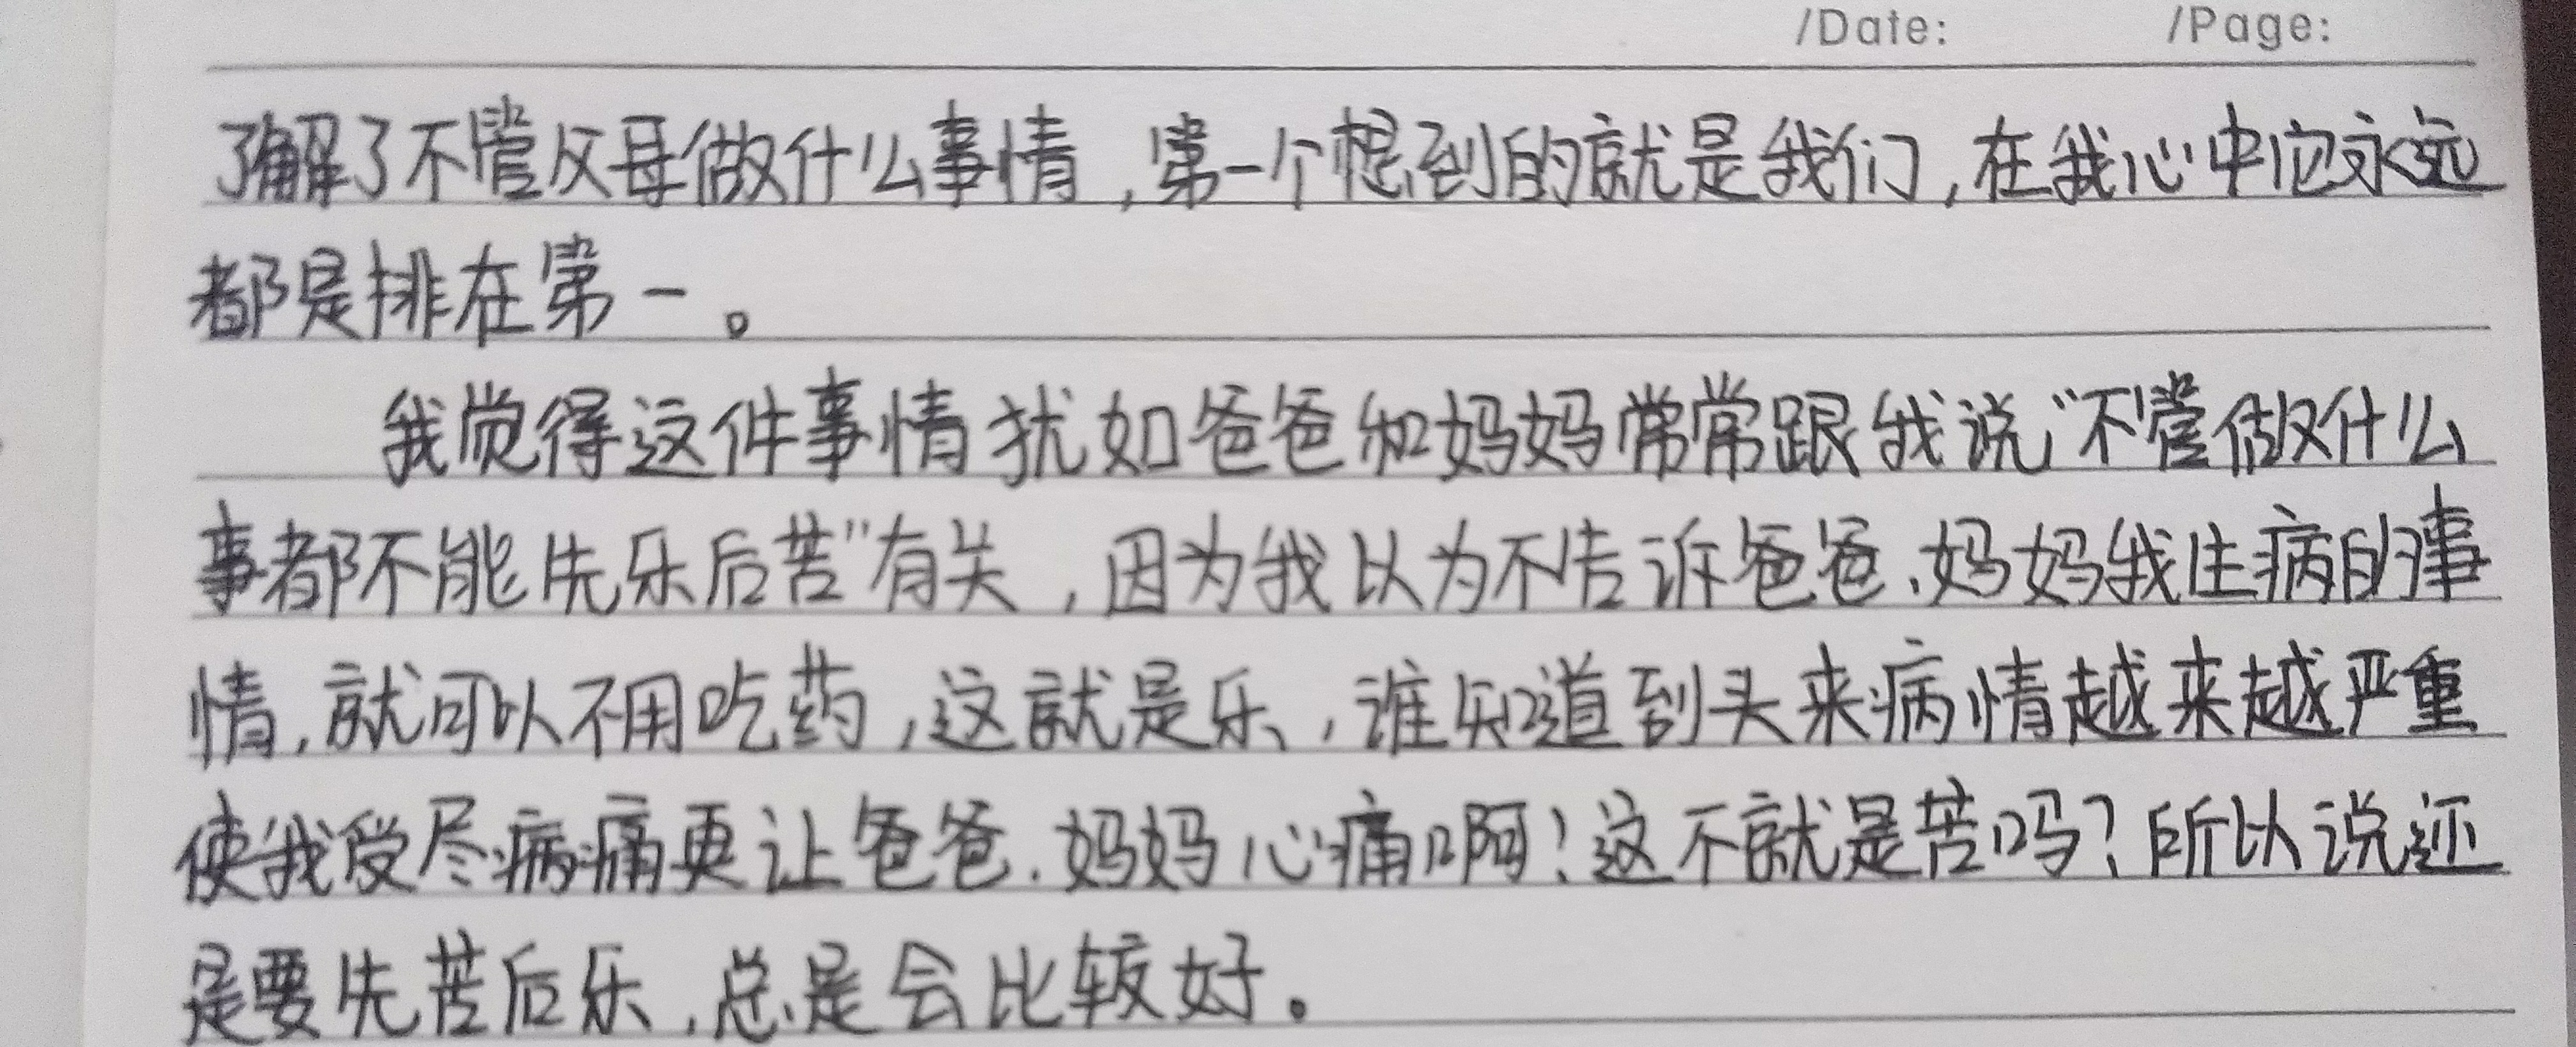 /Date: /Page:
了解了不管父母做什么事情,第一个想到的就是我们,在我心中它永远
都是排在第一。
我觉得这件事情犹如爸爸和妈妈常常跟我说“不管做什么
事都不能先乐后苦”有关,因为我以为不告诉爸爸、妈妈我生病的事
情,就可以不用吃药,这就是乐,谁知道到头来病情越来越严重
使我受尽病痛更让爸爸、妈妈心痛啊!这不就是苦吗?所以说还
是要先苦后乐,总是会比较好。